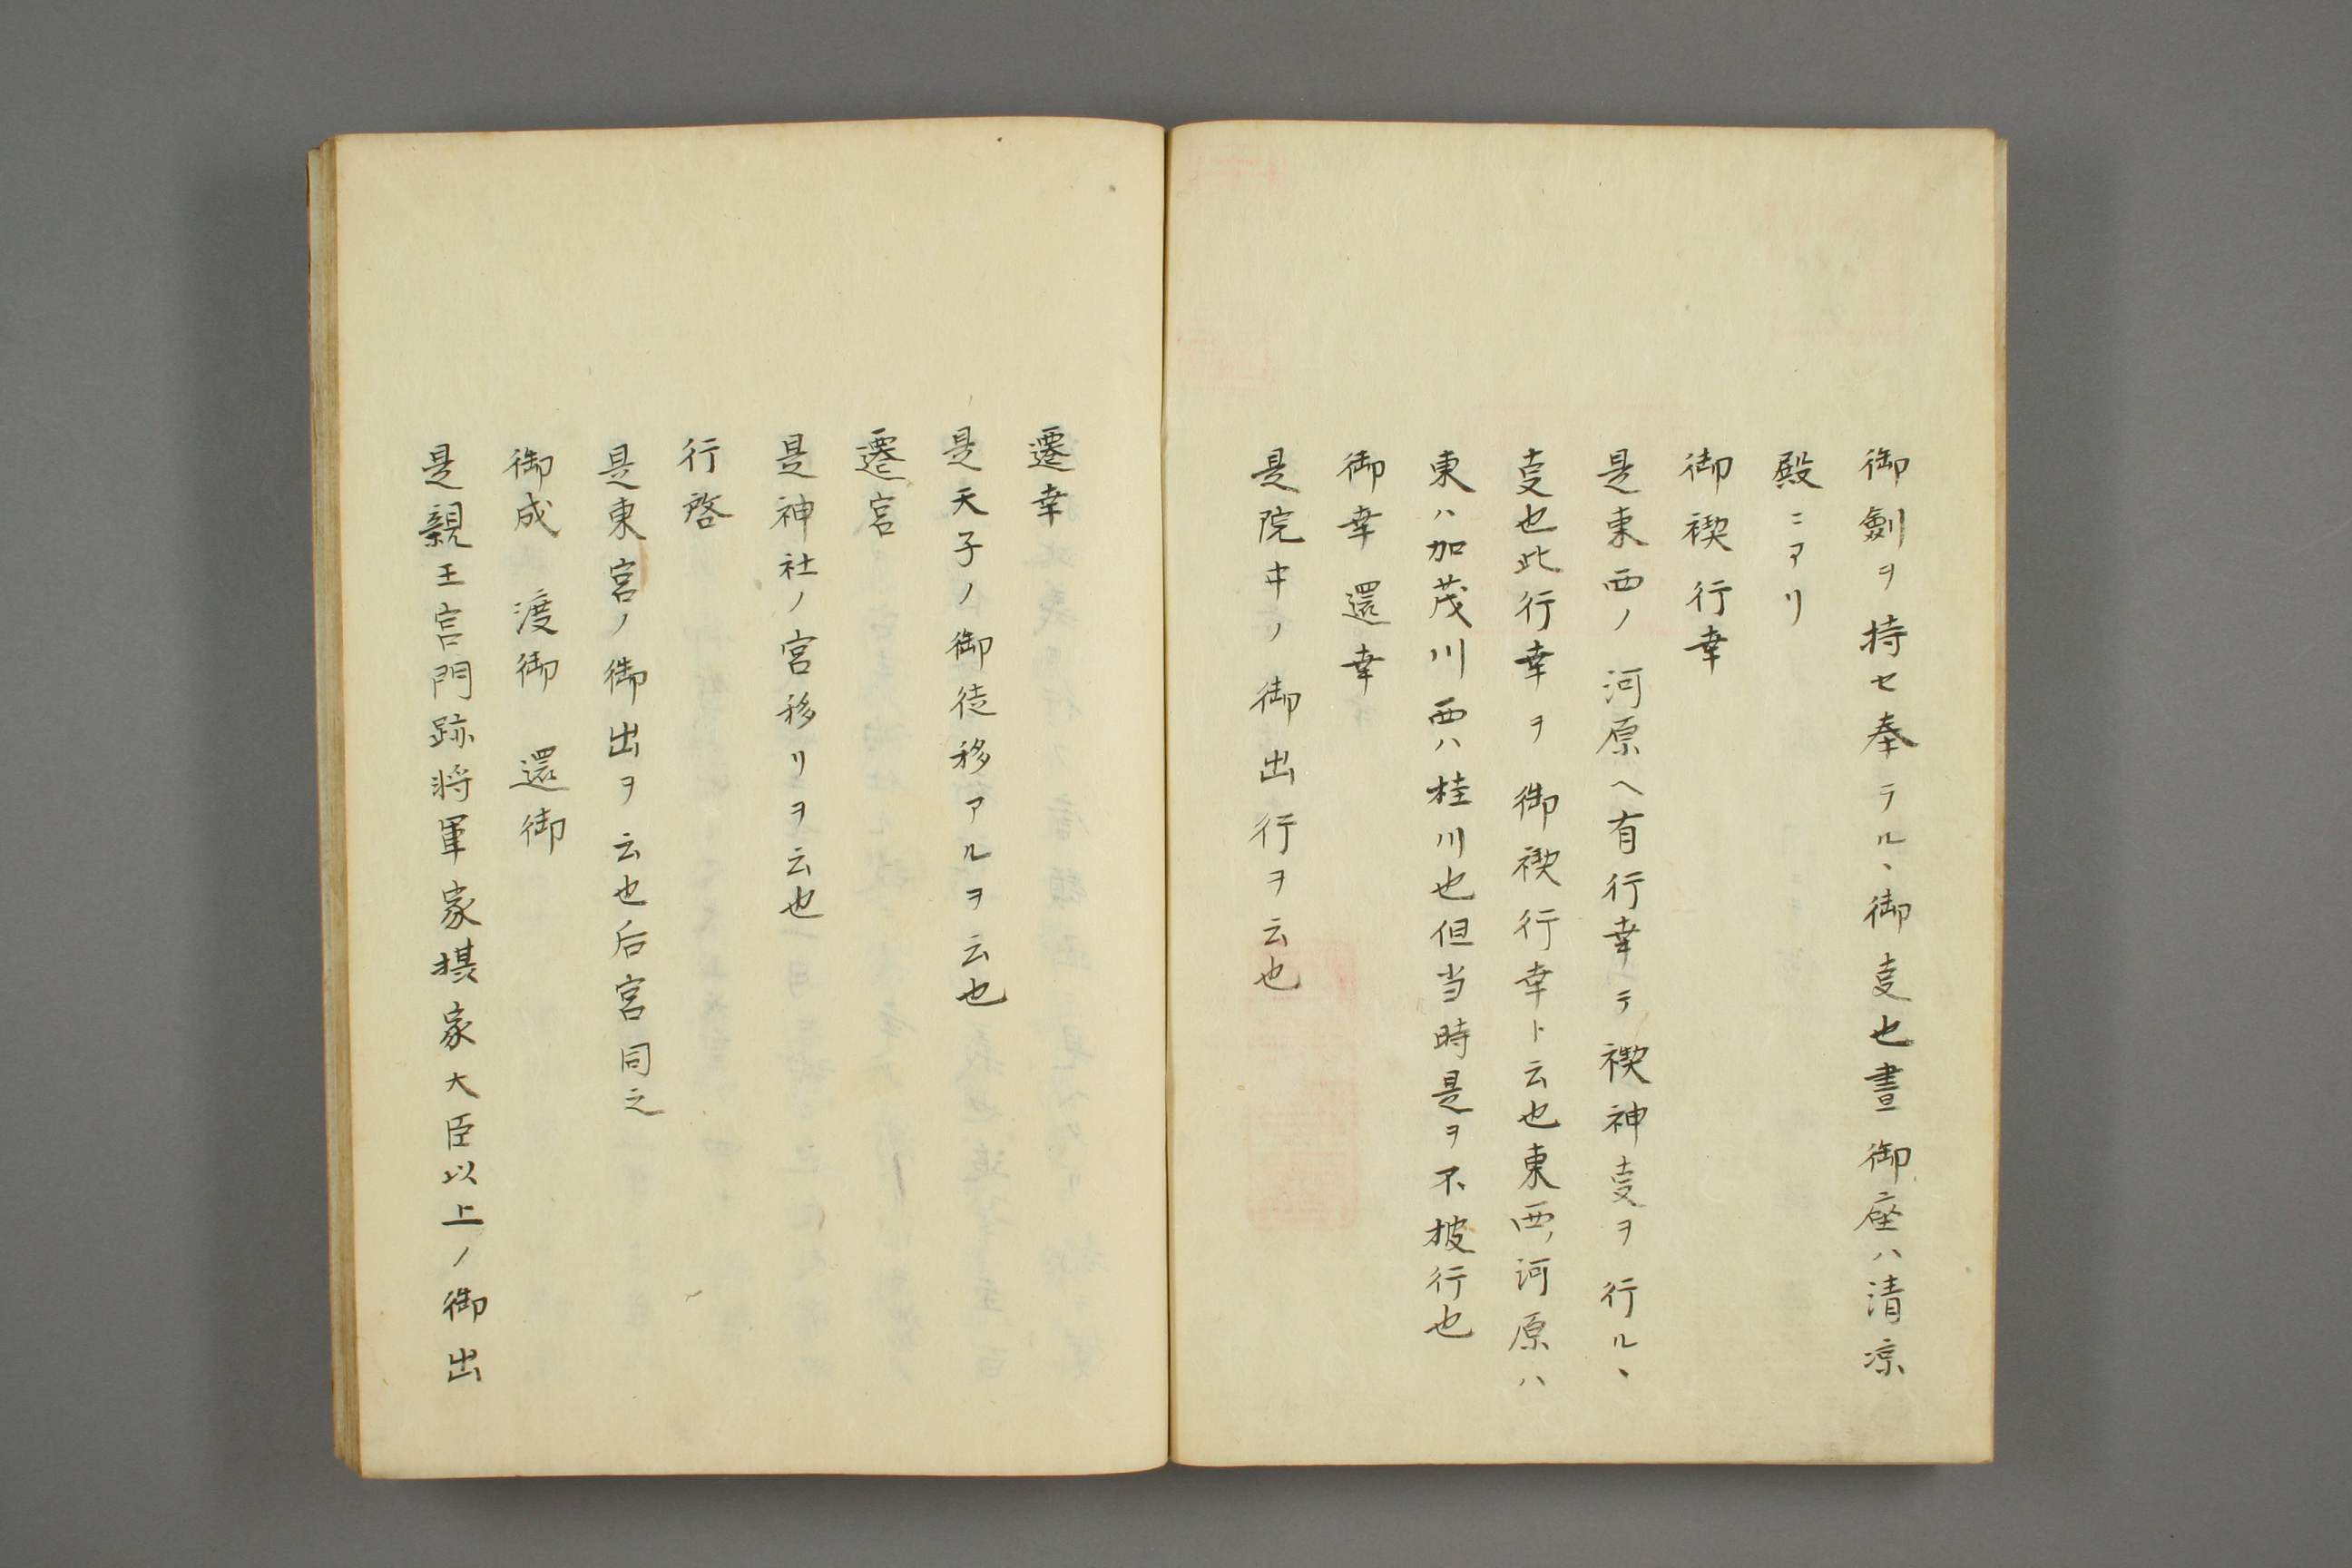 御劍ヲ持セ奉ラル丶御叓也晝御座ハ清涼
殿ニアリ
御禊行幸
是東西ノ河原ヘ有行幸テ禊神叓ヲ行ル丶
叓也此行幸ヲ御禊行幸ト云也東西ノ河原ハ
東ハ加茂川西ハ桂川也但当時是ヲ不被行也
御幸　還幸
是院中ノ御出行ヲ云也
遷幸
是天子ノ御徒移アルヲ云也
遷宮
是神社ノ宮移リヲ云也
行啓
是東宮ノ御出ヲ云也后宮同之
御成　渡御　還御
是親王宮門跡将軍家摂家大臣以上ノ御出